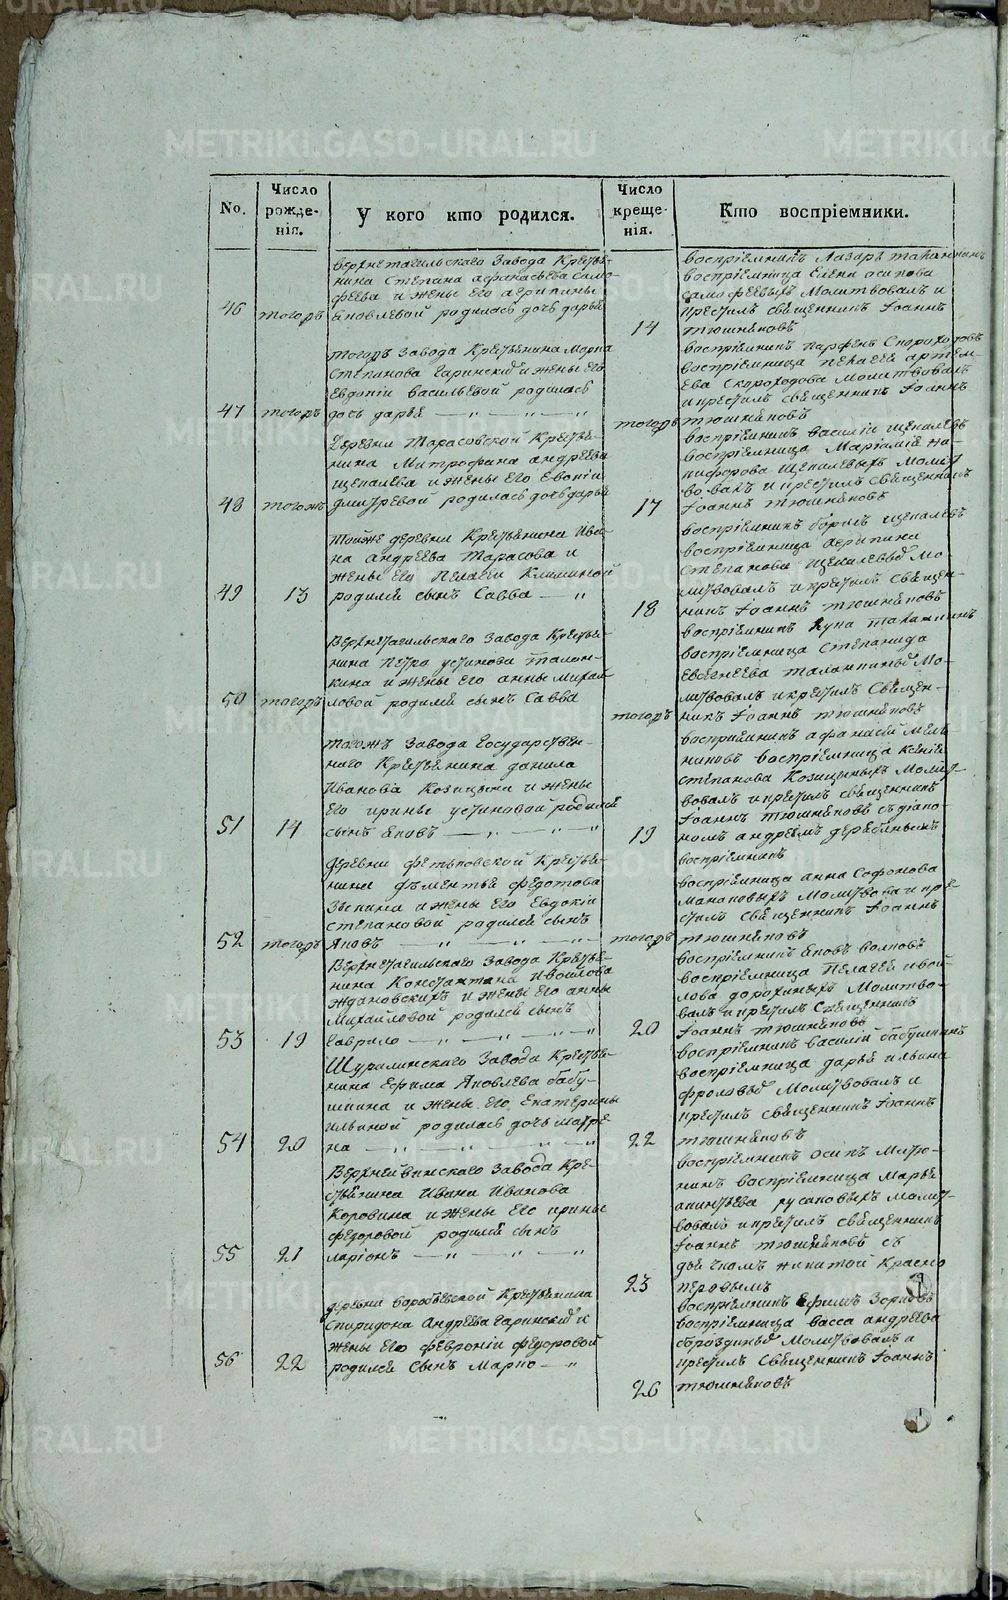 No.
Число рожде-нія.
У кого кто родился.
Число креще-нія.
Кто воспріемники.
46
тогожъ
Верхнетагильского Завода Крестья-
нина Степана Афанасьева Само-
феева и жены Его агрипины
Яковлевой родилась дочь дарья
14
воспріемникъ Лазарь
воспріемница Елена осипова
самофеевыхъ Молитвовалъ и
крестилъ священникъ Іоаннъ
тюшняковъ
47
тогожъ
тогожъ Завода Крестьянина Марка
Степанова Гаринскихъ и жены Его
Евдокіи васильевой родилась
дочь дарья
тогожъ
воспріемникъ парфенъ Скороходовъ
воспріемница пелагея артем-
ева Скороходова молитвовалъ
и крестилъ священникъ Іоаннъ
тюшняковъ
48
тогожъ
Деревни Тарасовской Крестья-
нина Митрофана андреева
щепалева и жены Его Евгеніи
дмитревой родилась дочь дарья
17
воспріемникъ василіи щепалевъ
воспріемница Маріамія Ни-
кифорова Щепалевыхъ Молит
вовалъ и крестилъ священникъ
Іоаннъ тюшняковъ
49
13
тойже деревни Крестьянина Ива-
на андреева Тарасова и
жены Его Пелагеи Климиной
родился сынъ Савва
18
воспріемникъ борисъ щепалевъ
воспріемница агрипина
степанова щепалевыхъ мо
литвовалъ и крестилъ Священ-
никъ Іоаннъ тюшняковъ
50
тогожъ
Верхнетагильскаго Завода Крестья-
нина петра устинова талан-
кина и жены Его анны михай
ловой родился сынъ Савва
тогожъ
воспріемникъ
воспріемница степанида
Евгенеева таланкиныхъ Мо-
литвовалъ и крестилъ Священ-
никъ Іоаннъ тюшняковъ
51
14
тогожъ Завода Государствен-
наго Крестьянина данила
Иванова Козицына и жены
Его ирины устиновой родился
сынъ яковъ
19
воспріемникъ афанасій мель
никовъ воспріемница Ксенія
степанова Козицыныхъ Молит-
вовалъ и крестилъ священникъ
Іоаннъ тюшняковъ съ діако-
номъ андреемъ дерябинымъ
52
тогожъ
деревни фетьковской Крестья-
нина дѣментья федотова
Зыкина и жены Его Евдокіи
степановой родился сынъ
Яковъ
тогожъ
воспріемникъ
воспріемница анна Софонова
Молитвова и кре-
стилъ Священникъ Іоаннъ
тюшняковъ
53
19
Верхнетагильскаго Завода Крестья-
нина Константина Ивойлова
Ждановскихъ и жены Его анны
михайловой родился сынъ
Гаврило
20
воспріемникъ яковъ волковъ
воспріемница Пелагея ивой-
лова дорохиныхъ Молитво-
валъ и крестилъ Священникъ
Іоаннъ тюшняковъ
54
20
Шуралинскаго Завода Крестья-
нина Ефима Яковлева бабу-
шкина и жены Его Екатерины
ильиной родилась дочь матре-
на
22
воспріемникъ василій бабушкинъ
воспріемница дарья ильина
фроловыхъ Молитвовалъ и
крестилъ священникъ Іоаннъ
тюшняковъ
55
21
Верхнейвинскаго Завода Кре-
стьянина Ивана Иванова
Коровина и жены Его ирины
федоровой родился сынъ
ларіонъ
23
воспріемникъ осипъ
воспріемница Марья
русаковыхъ молит-
вовалъ и крестилъ священникъ
Іоаннъ тюшняковъ съ
дьячкомъ никитой Красно
перовымъ
56
22
деревни воробьевской Крестьянина
Спиридона Андреева Гаринскихъ и
жены Его февроніи федоровой
родился сынъ Марко
26
воспріемникъ Ефимъ Зориновъ
воспріемница васса андреева
бороздиныхъ Молитвовалъ и
крестилъ Священникъ Іоаннъ
тюшняковъ
METRIKI.GASO-URAL.RU